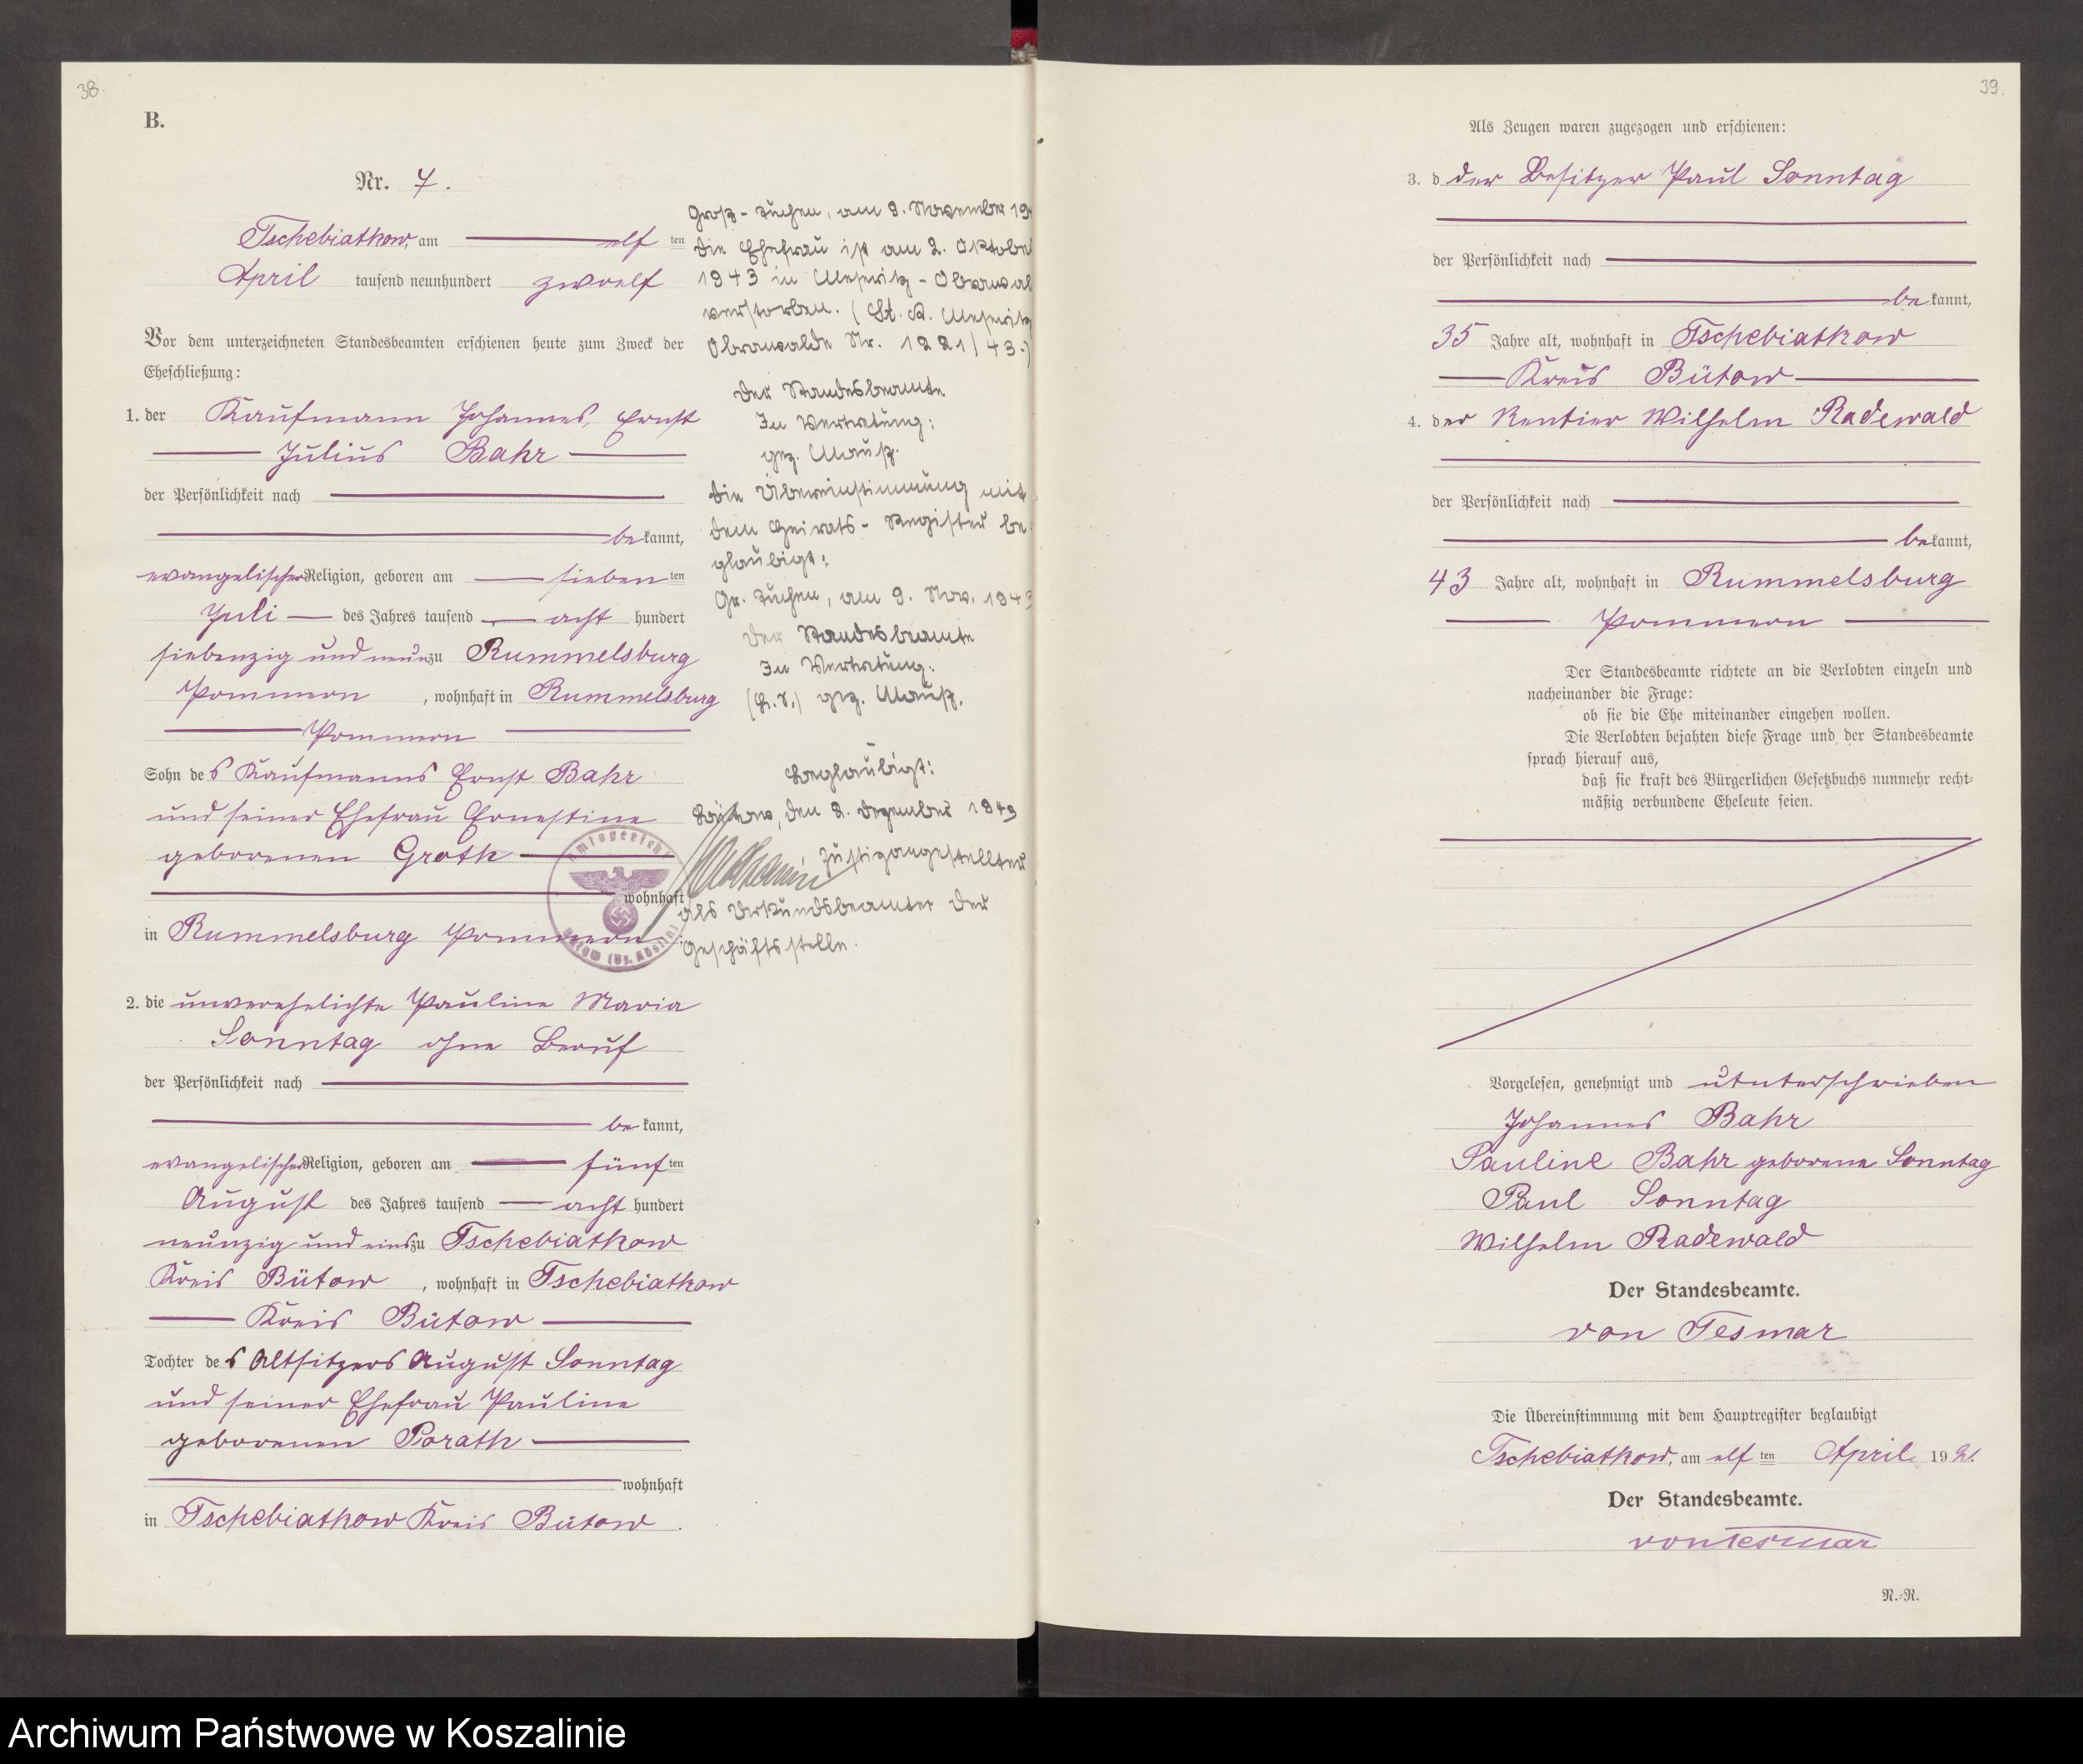 38.
B.
Nr. 7.
Tschebiatkow, am elf ten
April tausend neunhundert zwoelf
Vor dem unterzeichneten Standesbeamten erschienen heute zum Zweck der
Eheschließung:
1. der Kaufmann Johannes, Ernst
Julius Bahr
der Persönlichkeit nach
be kannt,
evangelischer Religion, geboren am sieben ten
Juli des Jahres tausend acht hundert
siebenzig und neun zu Rummelsburg
Pommern, wohnhaft in Rummelsburg
Pommern
Sohn des Kaufmanns Ernst Bahr
und seiner Ehefrau Ernestine
geborenen Groth
wohnhaft
in Rummelsburg Pommern.
2. die unverehelichte Pauline Maria
Sonntag ohne Beruf
der Persönlichkeit nach
be kannt,
evangelischer Religion, geboren am fünf ten
August des Jahres tausend acht hundert
neunzig und eins zu Tschebiatkow
Kreis Bütow, wohnhaft in Tschebiatkow
Kreis Bütow
Tochter des Altsitzers August Sonntag
und seiner Ehefrau Pauline
geborenen Porath
wohnhaft
in Tschebiatkow Kreis Bütow.
Groß-Tuchen, am 9. November 19
Die Ehefrau ist am 2. Oktober
1943 in Meseritz-Obrawal
verstorben. (St. A. Meseritz
Obrawalde Nr. 1221/43.)
Der Standesbeamte
In Vertretung:
gez.
Die Übereinstimmung mit
dem Heirats-Register be-
glaubigt:
Gr. Tuchen, am 9. Nov. 1943
Der Standesbeamte
In Vertretung:
(L.S.) gez.
Beglaubigt:
Bütow, den 2. Dezember 1943
Justizangestellter
als Urkundsbeamter der
Geschäftsstelle.
Amtsgericht
Bütow (Bz. Köslin)
39.
Als Zeugen waren zugezogen und erschienen:
3. d der Besitzer Paul Sonntag
der Persönlichkeit nach
be kannt,
35 Jahre alt, wohnhaft in Tschebiatkow
Kreis Bütow
4. der Rentier Wilhelm Radewald
der Persönlichkeit nach
be kannt,
43 Jahre alt, wohnhaft in Rummelsburg
Pommern
Der Standesbeamte richtete an die Verlobten einzeln und
nacheinander die Frage:
ob sie die Ehe miteinander eingehen wollen.
Die Verlobten bejahten diese Frage und der Standesbeamte
sprach hierauf aus,
daß sie kraft des Bürgerlichen Gesetzbuchs nunmehr recht-
mäßig verbundene Eheleute seien.
Vorgelesen, genehmigt und unterschrieben
Johannes Bahr
Pauline Bahr geborene Sonntag
Paul Sonntag
Wilhelm Radewald
Der Standesbeamte.
von Tesmar
Die Übereinstimmung mit dem Hauptregister beglaubigt
Tschebiatkow, am elf ten April 19
Der Standesbeamte.
von Tesmar
N.-R.
Archiwum Państwowe w Koszalinie